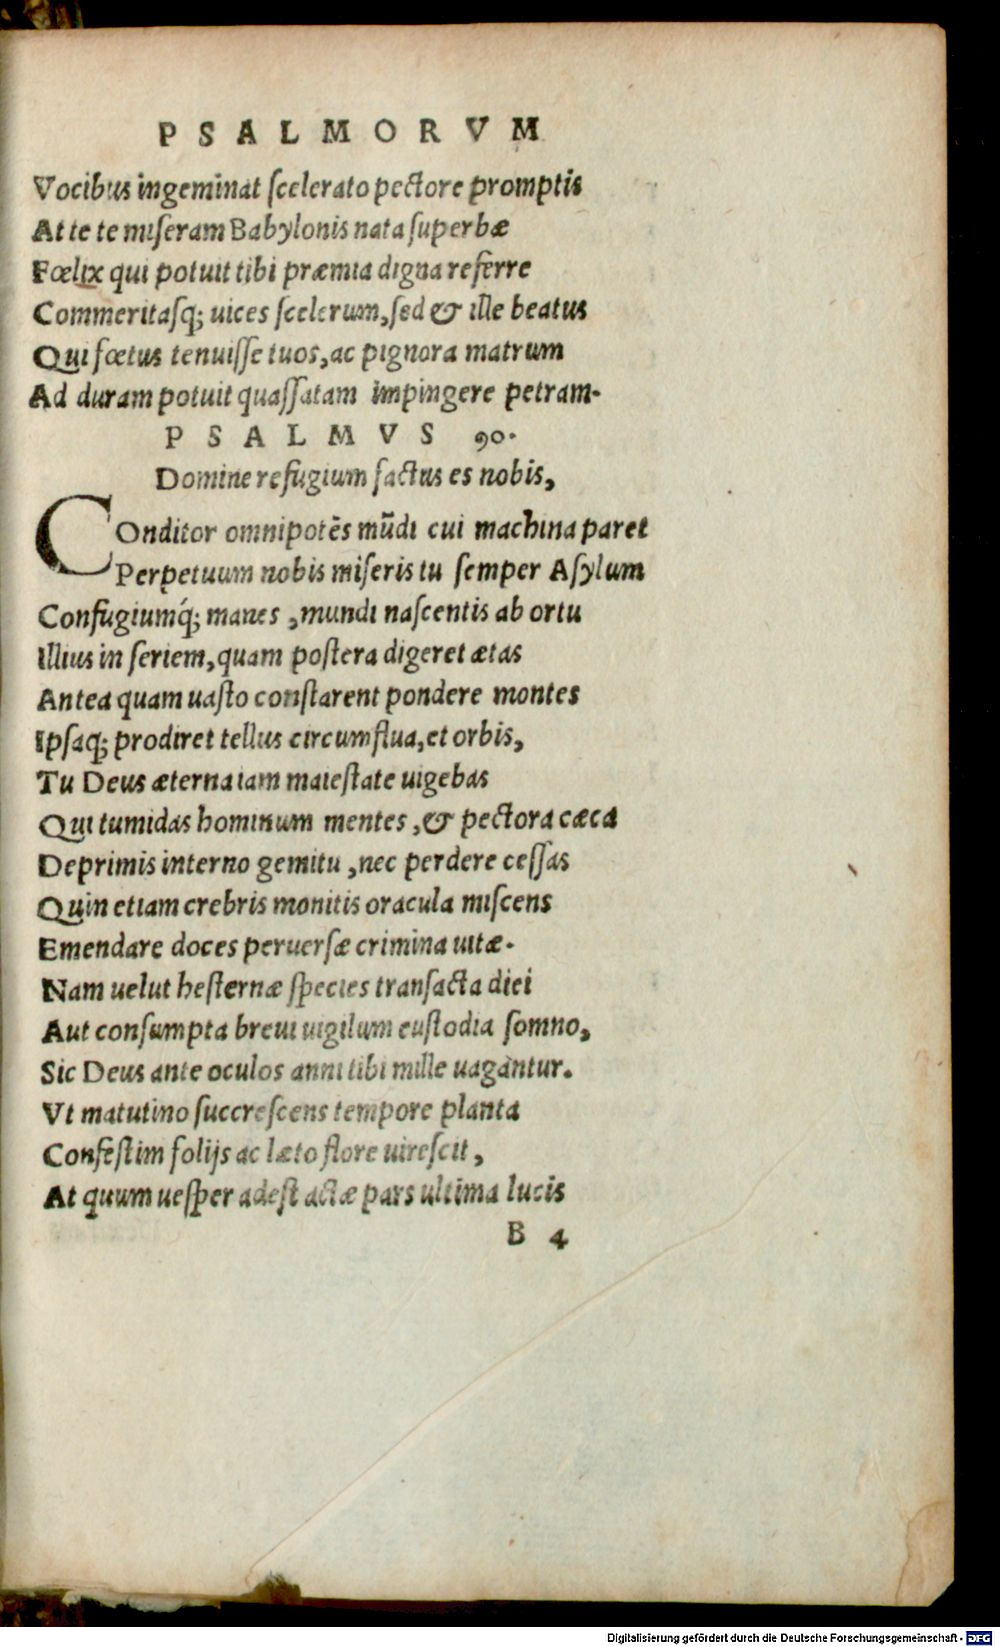 PSALMORVM
Vocibus ingeminat scelerato pectore promptis
At te te miseram Babylonis nata superbæ
Fœlix qui potuit tibi præmia digna referre
Commeritasq; uices scelerum, sed & ille beatus
Qui fœtus tenuisse tuos, ac pignora matrum
Ad duram potuit quassatam impingere petram.
PSALMVS 90.
Domine refugium factus es nobis,
COnditor omnipotẽs mũdi cui machina paret
Perpetuum nobis miseris tu semper Asylum
Confugiumq́; manes, mundi nascentis ab ortu
Illius in seriem, quam postera digeret ætas
Antea quam uasto constarent pondere montes
Ipsaq; prodiret tellus circumflua, et orbis,
Tu Deus æterna iam maiestate uigebas
Qui tumidas hominum mentes, & pectora cæca
Deprimis interno gemitu, nec perdere cessas
Quin etiam crebris monitis oracula miscens
Emendare doces peruersæ crimina uitæ.
Nam uelut hesternæ species transacta diei
Aut consumpta breui uigilum custodia somno,
Sic Deus ante oculos anni tibi mille uagantur.
Vt matutino succrescens tempore planta
Confestim folijs ac læto flore uirescit,
At quum uesper adest actæ pars ultima lucis
B 4
Digitalisierung gefördert durch die Deutsche Forschungsgemeinschaft - DFG